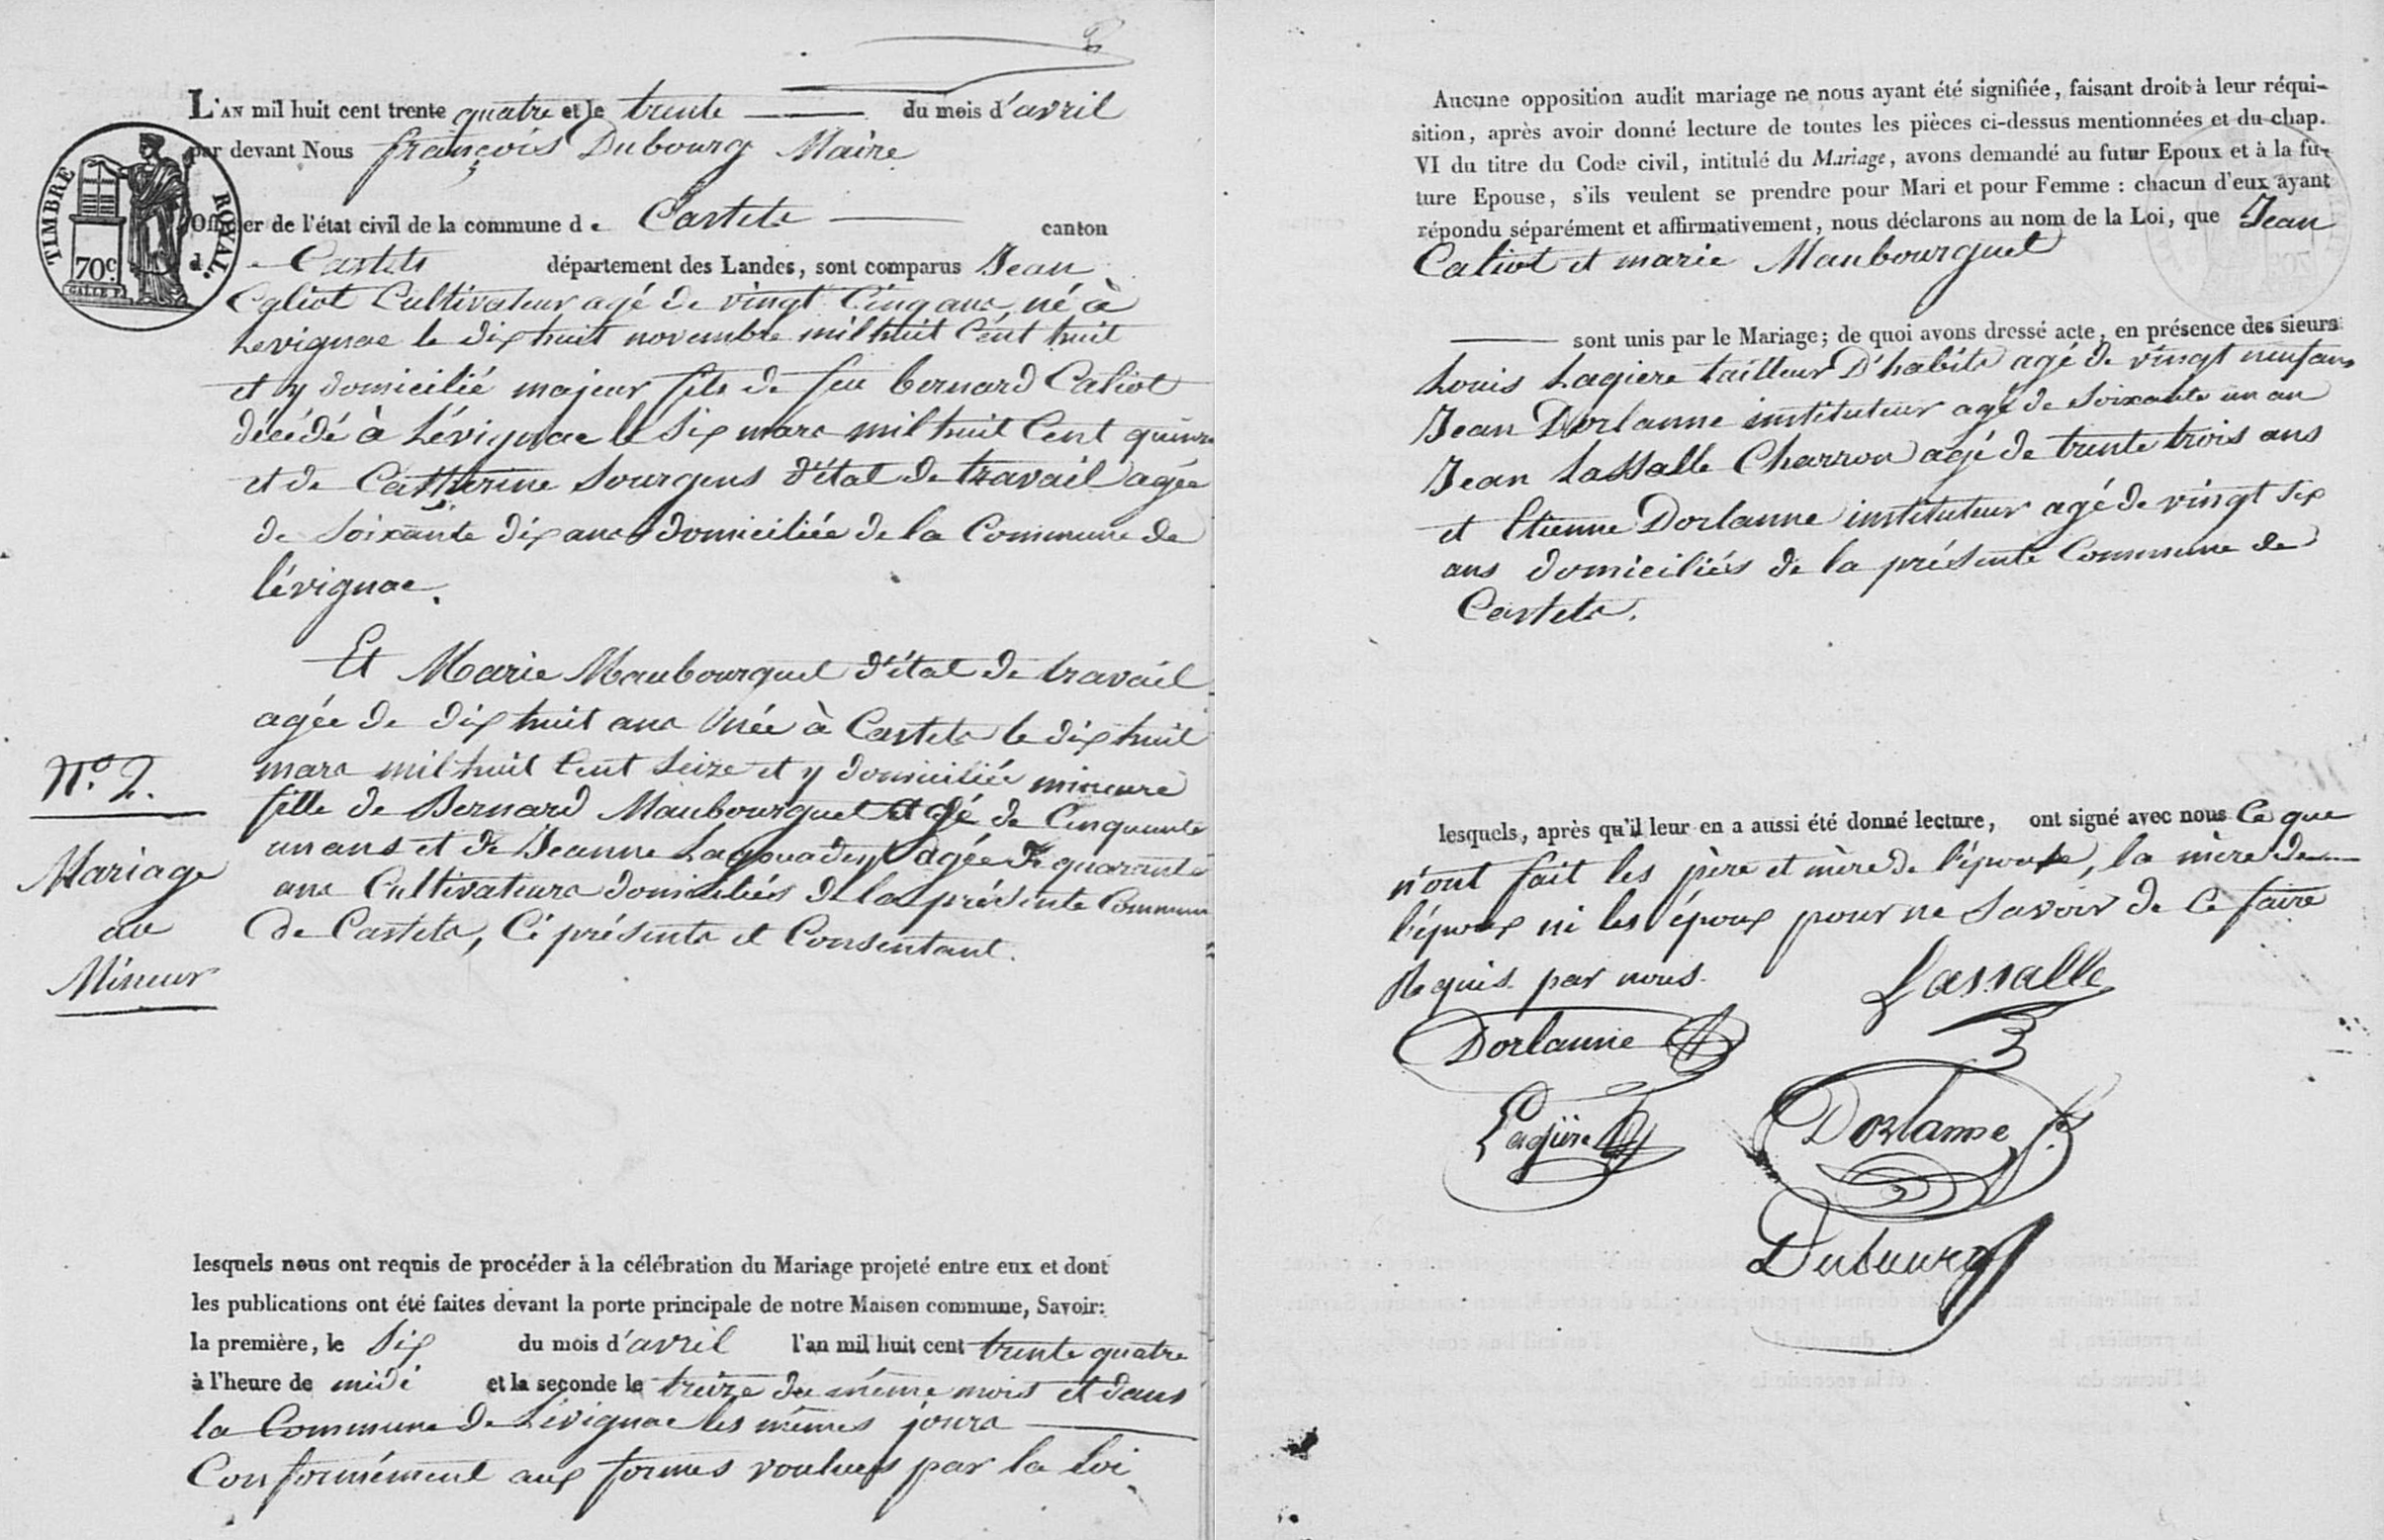 L'AN mil huit cent trente quatre et le trente du mois d'avril
par devant Nous françois Dubourg Maire
Officier de l'état civil de la commune de Castets canton
d e Castets département des Landes, sont comparus Jean
Caliot Cultivateur agé de vingt Cinq ans, né à
Levignac le dix huit novembre mil huit Cent huit
et y domicilié majeur fils de feu bernard Caliot
décédé à Lévignac le Six mars mil huit Cent quinze
et de Catherine Sourgens d'état de travail agée
de Soixante dix ans domiciliée de la Commune de
lévignac.
Et Marie Maubourguet d'état de travail
agée de dix huit ans née à Castets le dix huit
mars mil huit Cent Seize et y domiciliée mineure
fille de Bernard Maubourguet agé de Cinquante
un ans et de Jeanne Lagouadeyt agée de quarante
ans Cultivateurs domiciliés de la présente Commune
de Castets, Ci présents et Consentant.
TIMBRE ROYAL.
70c
GALLE F.
N.o 2.
Mariage
au
Mineur
lesquels nous ont requis de procéder à la célébration du Mariage projeté entre eux et dont
les publications ont été faites devant la porte principale de notre Maison commune, Savoir:
la première, le Six du mois d'avril l'an mil huit cent trente quatre
à l'heure de midi et la seconde le treize du même mois et dans
la Commune de Lévignac les mêmes jours
Conformément aux formes voulues par la Loi
Aucune opposition audit mariage ne nous ayant été signifiée, faisant droit à leur réqui-
sition, après avoir donné lecture de toutes les pièces ci-dessus mentionnées et du chap.
VI du titre du Code civil, intitulé du Mariage, avons demandé au futur Epoux et à la fu-
ture Epouse, s'ils veulent se prendre pour Mari et pour Femme : chacun d'eux ayant
répondu séparément et affirmativement, nous déclarons au nom de la Loi, que Jean
Caliot et marie Maubourguet
sont unis par le Mariage; de quoi avons dressé acte, en présence des sieurs
Louis Lagiere tailleur D'habits agé de vingt neuf ans
Jean Dorlanne instituteur agé de Soixante un an
Jean Lassalle Charron agé de trente trois ans
et Etienne Dorlanne instituteur agé de vingt Six
ans domiciliés de la présente Commune de
Castets.
lesquels, après qu'il leur en a aussi été donné lecture, ont signé avec nous Ce que
n'ont fait les père et mère de l'épouse, la mère de
l'époux ni les époux pour ne Savoir de Ce faire
Requis par nous.
Lassalle
Dorlanne
Lagiere
Dorlanne
Dubourg